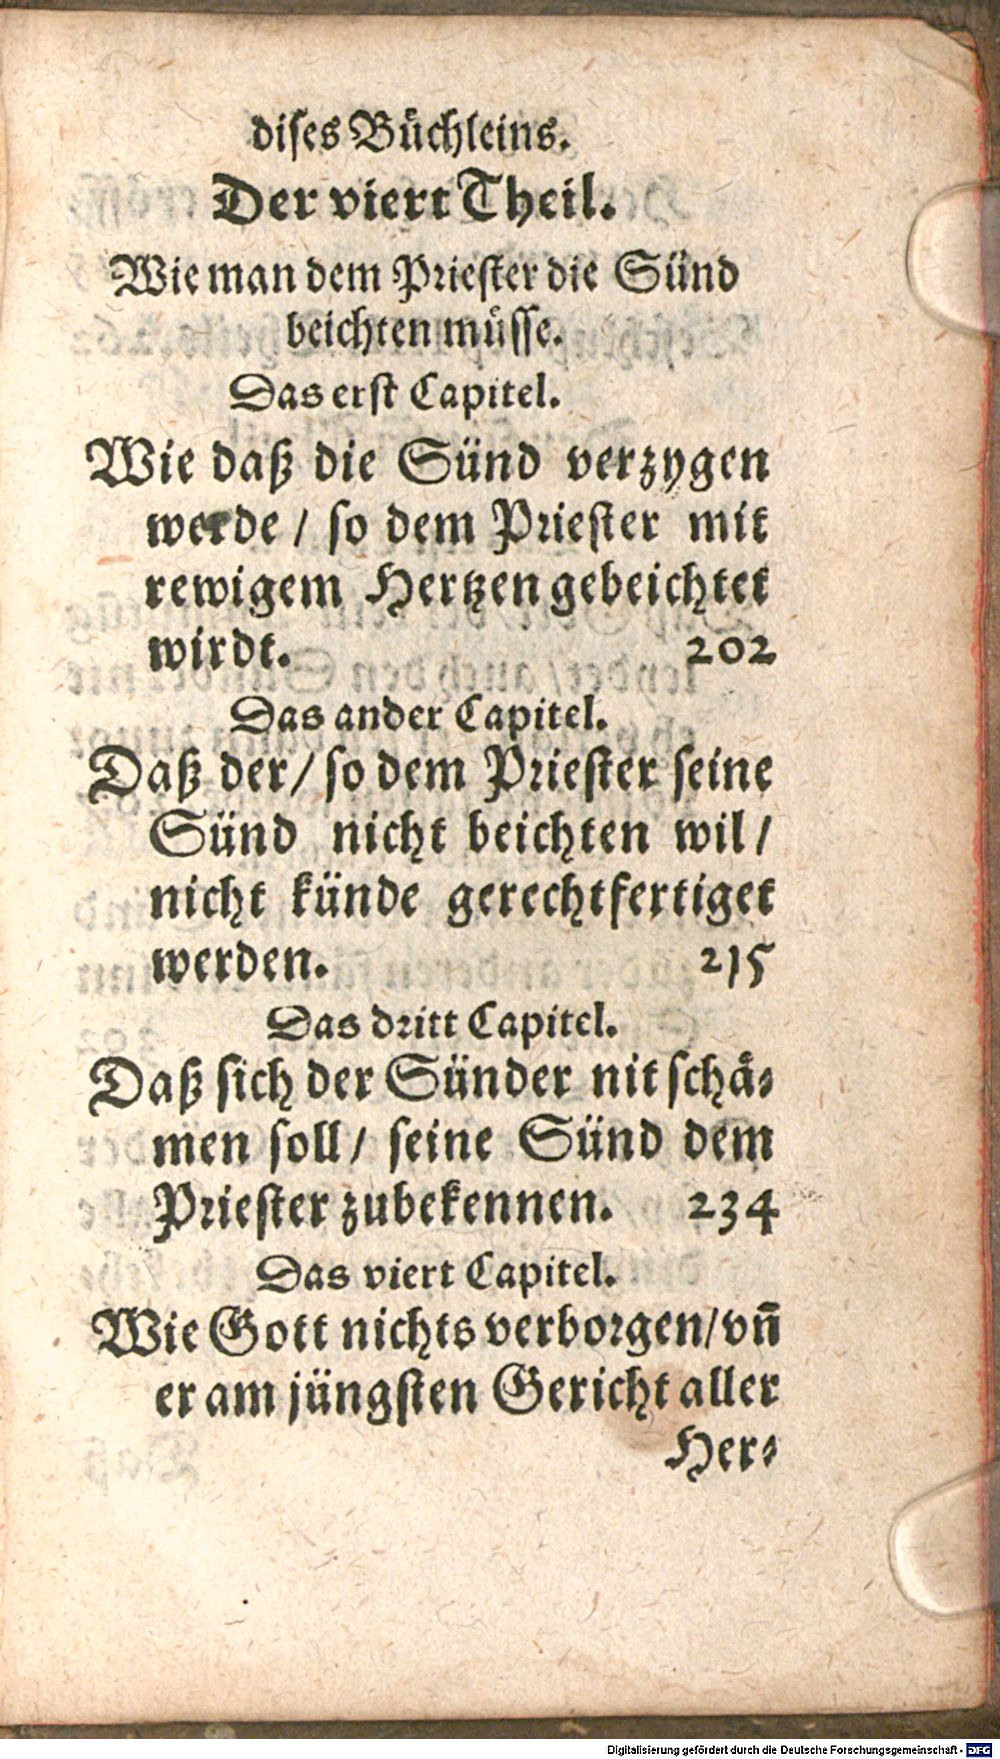 dises Buͤchleins.
Der viert Theil.
Wie man dem Priester die Sünd
beichten muͤsse.
Das erst Capitel.
Wie daß die Sünd verzygen
werde / so dem Priester mit
rewigem Hertzen gebeichtet
wirdt. 202
Das ander Capitel.
Daß der / so dem Priester seine
Sünd nicht beichten wil /
nicht künde gerechtfertiget
werden. 215
Das dritt Capitel.
Daß sich der Sünder nit schaͤ-
men soll / seine Sünd dem
Priester zubekennen. 234
Das viert Capitel.
Wie Gott nichts verborgen / vn̄
er am jüngsten Gericht aller
Her-
Digitalisierung gefördert durch die Deutsche Forschungsgemeinschaft - DFG